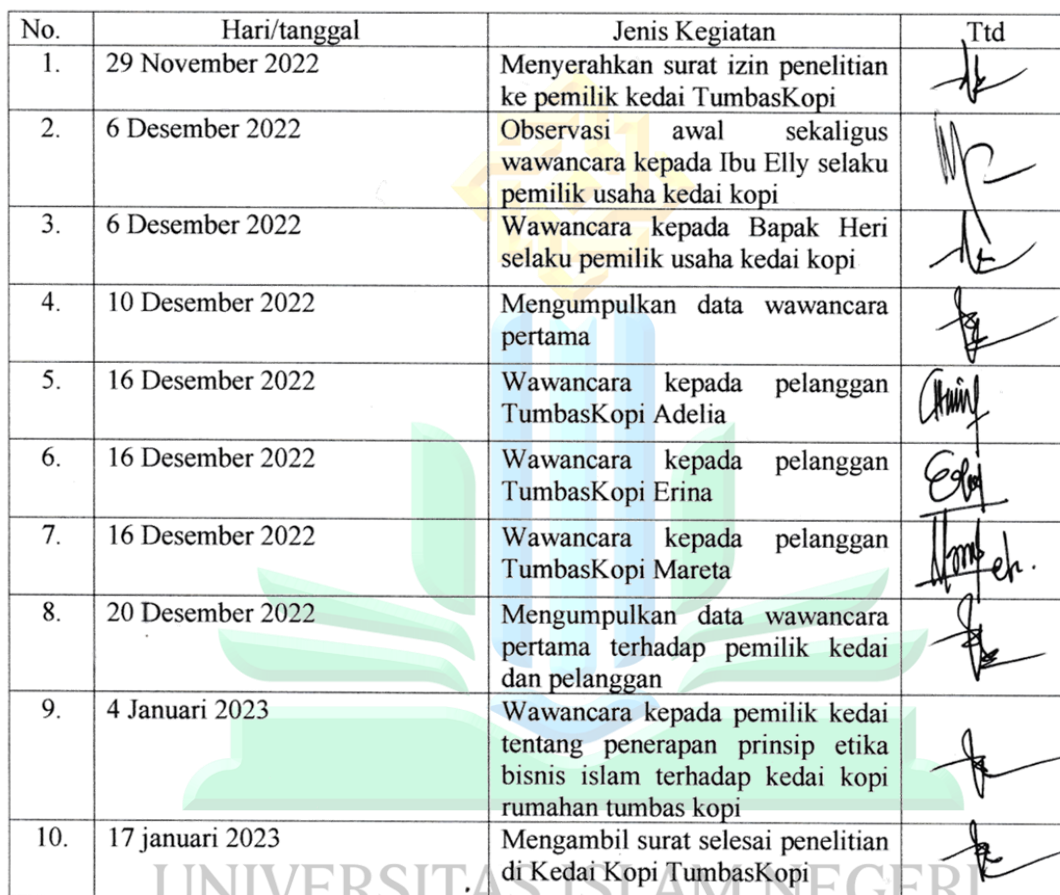 No. Hari/tanggal Jenis Kegiatan Ttd
1. 29 November 2022 Menyerahkan surat izin penelitian
ke pemilik kedai TumbasKopi
2. 6 Desember 2022 Observasi awal sekaligus
wawancara kepada Ibu Elly selaku
pemilik usaha kedai kopi
3. 6 Desember 2022 Wawancara kepada Bapak Heri
selaku pemilik usaha kedai kopi
4. 10 Desember 2022 Mengumpulkan data wawancara
pertama
5. 16 Desember 2022 Wawancara kepada pelanggan
TumbasKopi Adelia
6. 16 Desember 2022 Wawancara kepada pelanggan
TumbasKopi Erina
7. 16 Desember 2022 Wawancara kepada pelanggan
TumbasKopi Mareta
8. 20 Desember 2022 Mengumpulkan data wawancara
pertama terhadap pemilik kedai
dan pelanggan
9. 4 Januari 2023 Wawancara kepada pemilik kedai
tentang penerapan prinsip etika
bisnis islam terhadap kedai kopi
rumahan tumbas kopi
10. 17 januari 2023 Mengambil surat selesai penelitian
di Kedai Kopi TumbasKopi
UNIVERSITAS ISLAM NEGERI